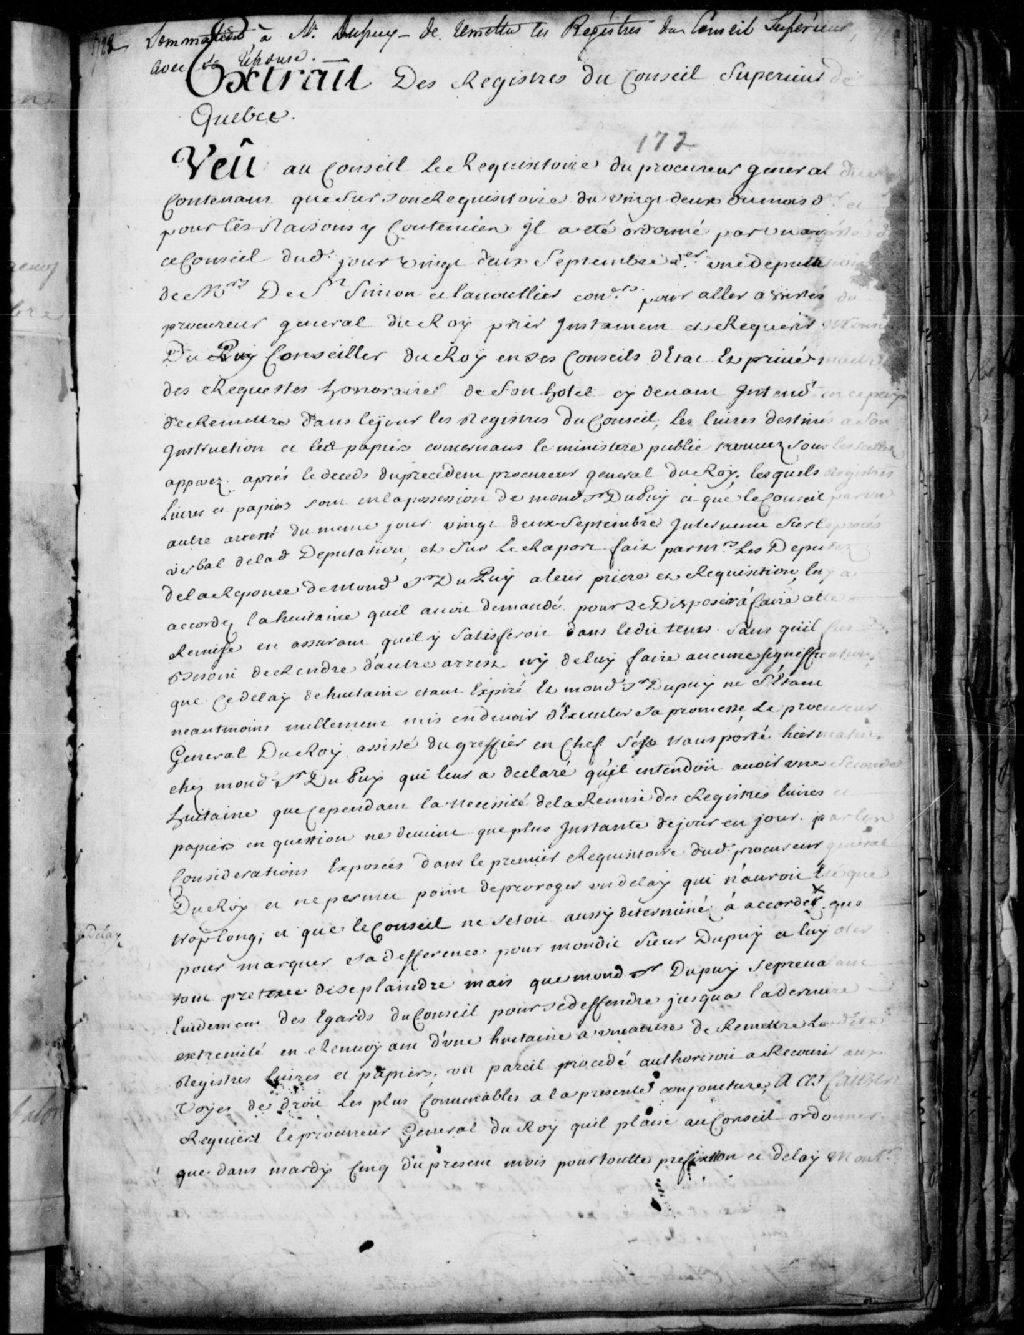 1728 Sommation à Mr. Dupuy de remettre les Régistres du Conseil Supérieur,
avec sa réponse.
Extrait Des Registres du Conseil Superieur de
Quebec.
172
Veû au Conseil Le Requisitoire du procureur general du
Contenant que Sur Son Requisitoire du vingt deux du mois d
pour les Raisons y Contenües Il a été ordonné par un
ce Conseil dud. jour vingt deux Septembre vne deputa
de Mrs De St Simon et lanoullier conrs. pour aller avec le
procureur general du Roy prier Instament et Requerir Monsr
Du Puy Conseiller du Roy en Ses Conseils d'Etat Et privé, maitre
des Requestes honoraires de Son hotel cy devant Intendt. en ce pays
de Remettre dans le jour les Registres du Conseil, Les livres destinés a Son
Instruction et les papiers concernans le ministere public trouvez Sous les scellez
apposez aprés le deceds du precedent procureur general du Roy, lesquels Registres
Livres et papiers sont en la possession de mond. Sr Du Puy et que le Conseil par un
autre arrest du meme jour vingt deux Septembre Intervenu Sur le procés
verbal de lad Deputation, et Sur Le Raport fait par mrs Les Deputez
de la Reponce de Mond Sr Du Puy a leur priere et Requisition, luy a
accordé la huitaine quil avoit demandé pour Se Disposer à faire cette
Remise en assurant quil y Satisferoit dans ledit tems Sans quil fut
besoin de Rendre d'autre arrest ny de luy faire aucune signiffication,
que Ce delay de huitaine etant Expiré Et mond. Sr Dupuy ne S'Etant
neantmoins nullement mis en devoir d'Executer Sa promesse, Le procureur
General Du Roy assisté du greffier en Chef S'est transporté hier matin
chez mond. Sr Du Puy qui leur a declaré qu'il entendoit avoir vne Seconde
huitaine que Cependant la necessité de la Remise des Registres livres et
papiers en question ne devient que plus Instante de jour en jour par les
Considerations Exposées dans le premier Requisitoire dud. procureur general
Du Roy et ne permet point de proroger un delay qui n'auroit Eté que
trop long; et que le Conseil ne setoit aussy determiné à accorder que
Delay
pour marquer Sa defference pour mondit Sieur Dupuy et luy oter
tout pretexte de se plaindre mais que mond Sr Dupuy Se prevalant
Evidement des Egards du Conseil pour Se deffendre jusqua la derniere
extremité en Renvoyant d'vne huitaine a vne autre de Remettre Lesd.
Registres livres et papiers, un pareil procedé authorisoit a Recourir aux
Voyes de droit Les plus Convenables a la presente conjoncture, A CES CAUSES
Requiert le procureur General du Roy quil plaise au Conseil ordonner
que dans mardy Cinq du present mois pour toutte prefixtion et delay Mond.